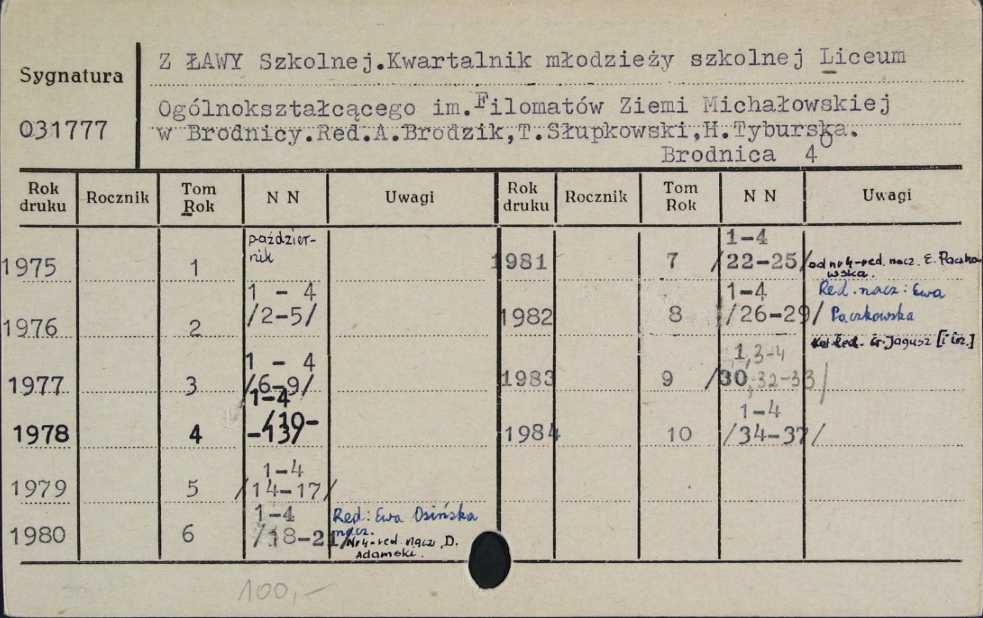 Sygnatura
031777
Z ŁAWY Szkolnej.Kwartalnik młodzieży szkolnej Liceum
Ogólnokształcącego im.Filomatów Ziemi Michałowskiej
w Brodnicy.Red.A.Brodzik,T.Słupkowski,H.Tyburska.
Brodnica 4o
Rok druku Rocznik Tom Rok N N Uwagi Rok druku Rocznik Tom Rok N N Uwagi
1975 1 paździer-
nik
1981 7 1-4
/22-25/ od nr 4-red. nacz. E. Paczko
wska.
1976 2 1 - 4
/2-5/
1982 8 1-4
/26-29/ Red. nacz: Ewa
Paczkowska
1977 3 1 - 4
/6-9/
Red. Gr. Jagusz [i in.]
1983 9 1,3-4
/30,32-33/
1978 4 1-4
/10-
-13/
1984 10 1-4
/34-37/
1979 5 1-4
/14-17/
1980 6 1-4
/18-21/ Red: Ewa Osińska
nacz.
Nr 4-red. nacz. D.
Adamski.
100,-